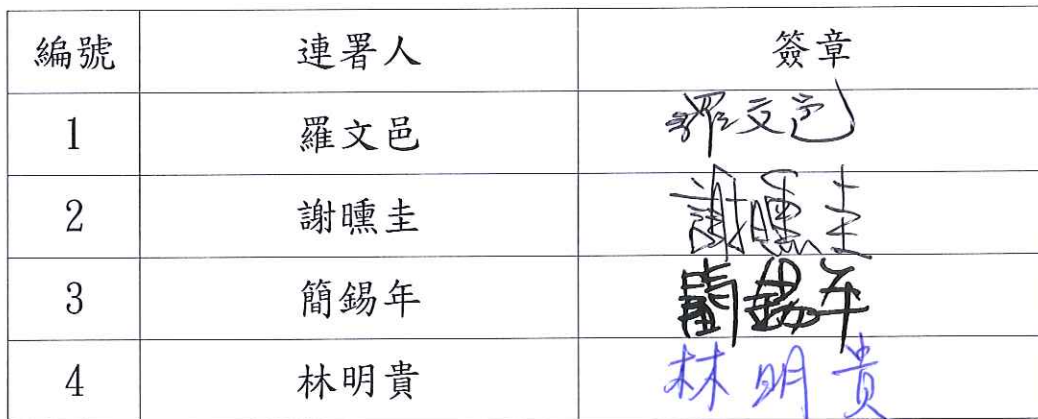 編號 連署人 簽章
1 羅文邑 羅文邑
2 謝曛圭 謝曛圭
3 簡錫年 簡錫年
4 林明貴 林明貴